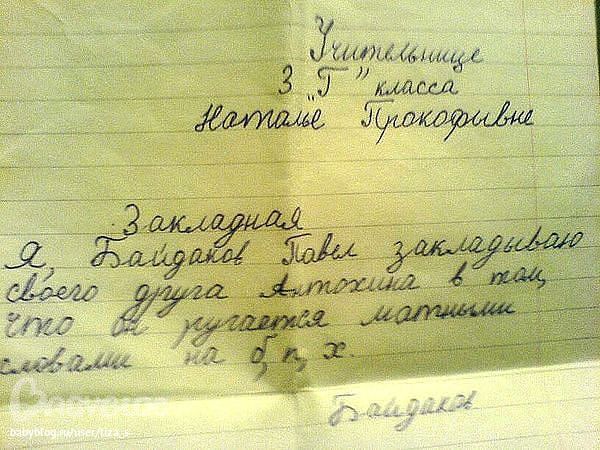 Учительнице
3 "Г" класса
Наталье Прокофывне
Закладная
Я, Байдаков Павел закладываю
своего друга Антохина в том,
что он ругается матными
словами на б, п, х.
Байдаков
babyblog.ru/user/liza_s